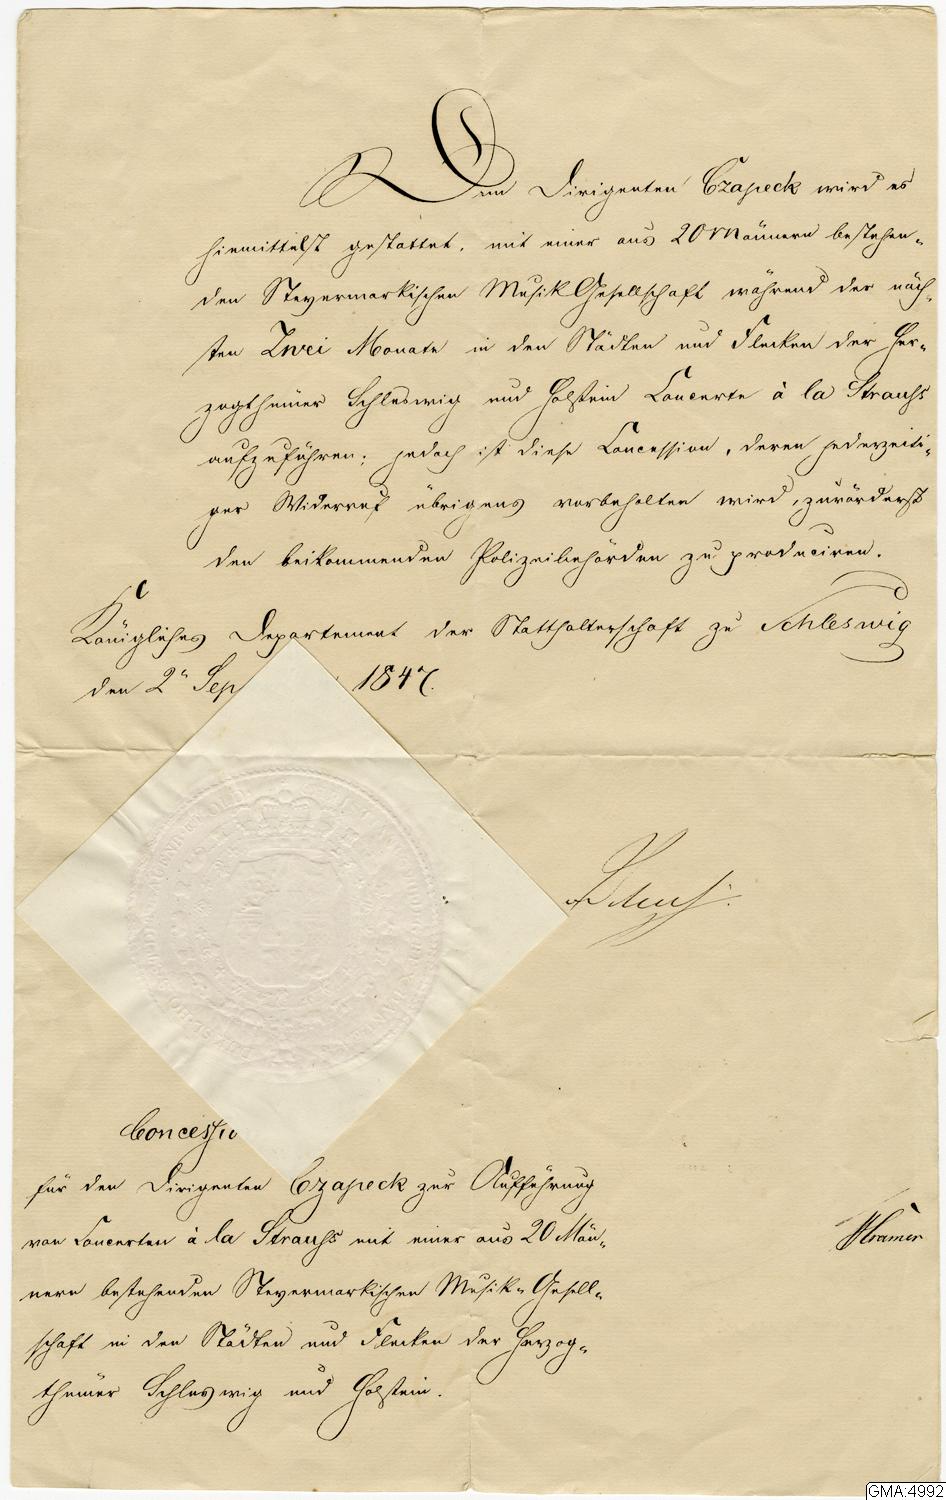 Dem Dirigenten Czapeck wird es
hiemittelst gestattet, mit einer aus 20 Männern bestehen-
den Steyermarkischen Musik Gesellschaft während der näch-
sten Zwei Monate in den Städten und Flecken der Her-
zogthümer Schleswig und Holstein Concerte à la Strauss
aufzuführen; jedoch ist diese Concession, deren jederzeiti-
ger Widerruf übrigens vorbehalten wird, zuvörderst
den beikommenden Polizeibehörden zu produciren.
Königliches Departement der Statthalterschaft zu Schleswig
den 2n Sep 1847.
Concessio
für den Dirigenten Czapeck zur Aufführung
von Concerten à la Strauss mit einer aus 20 Män-
nern bestehenden Steyermarkischen Musik-Gesell-
schaft in den Städten und Flecken der Herzog-
thümer Schleswig und Holstein.
Kramer
GMA:4992